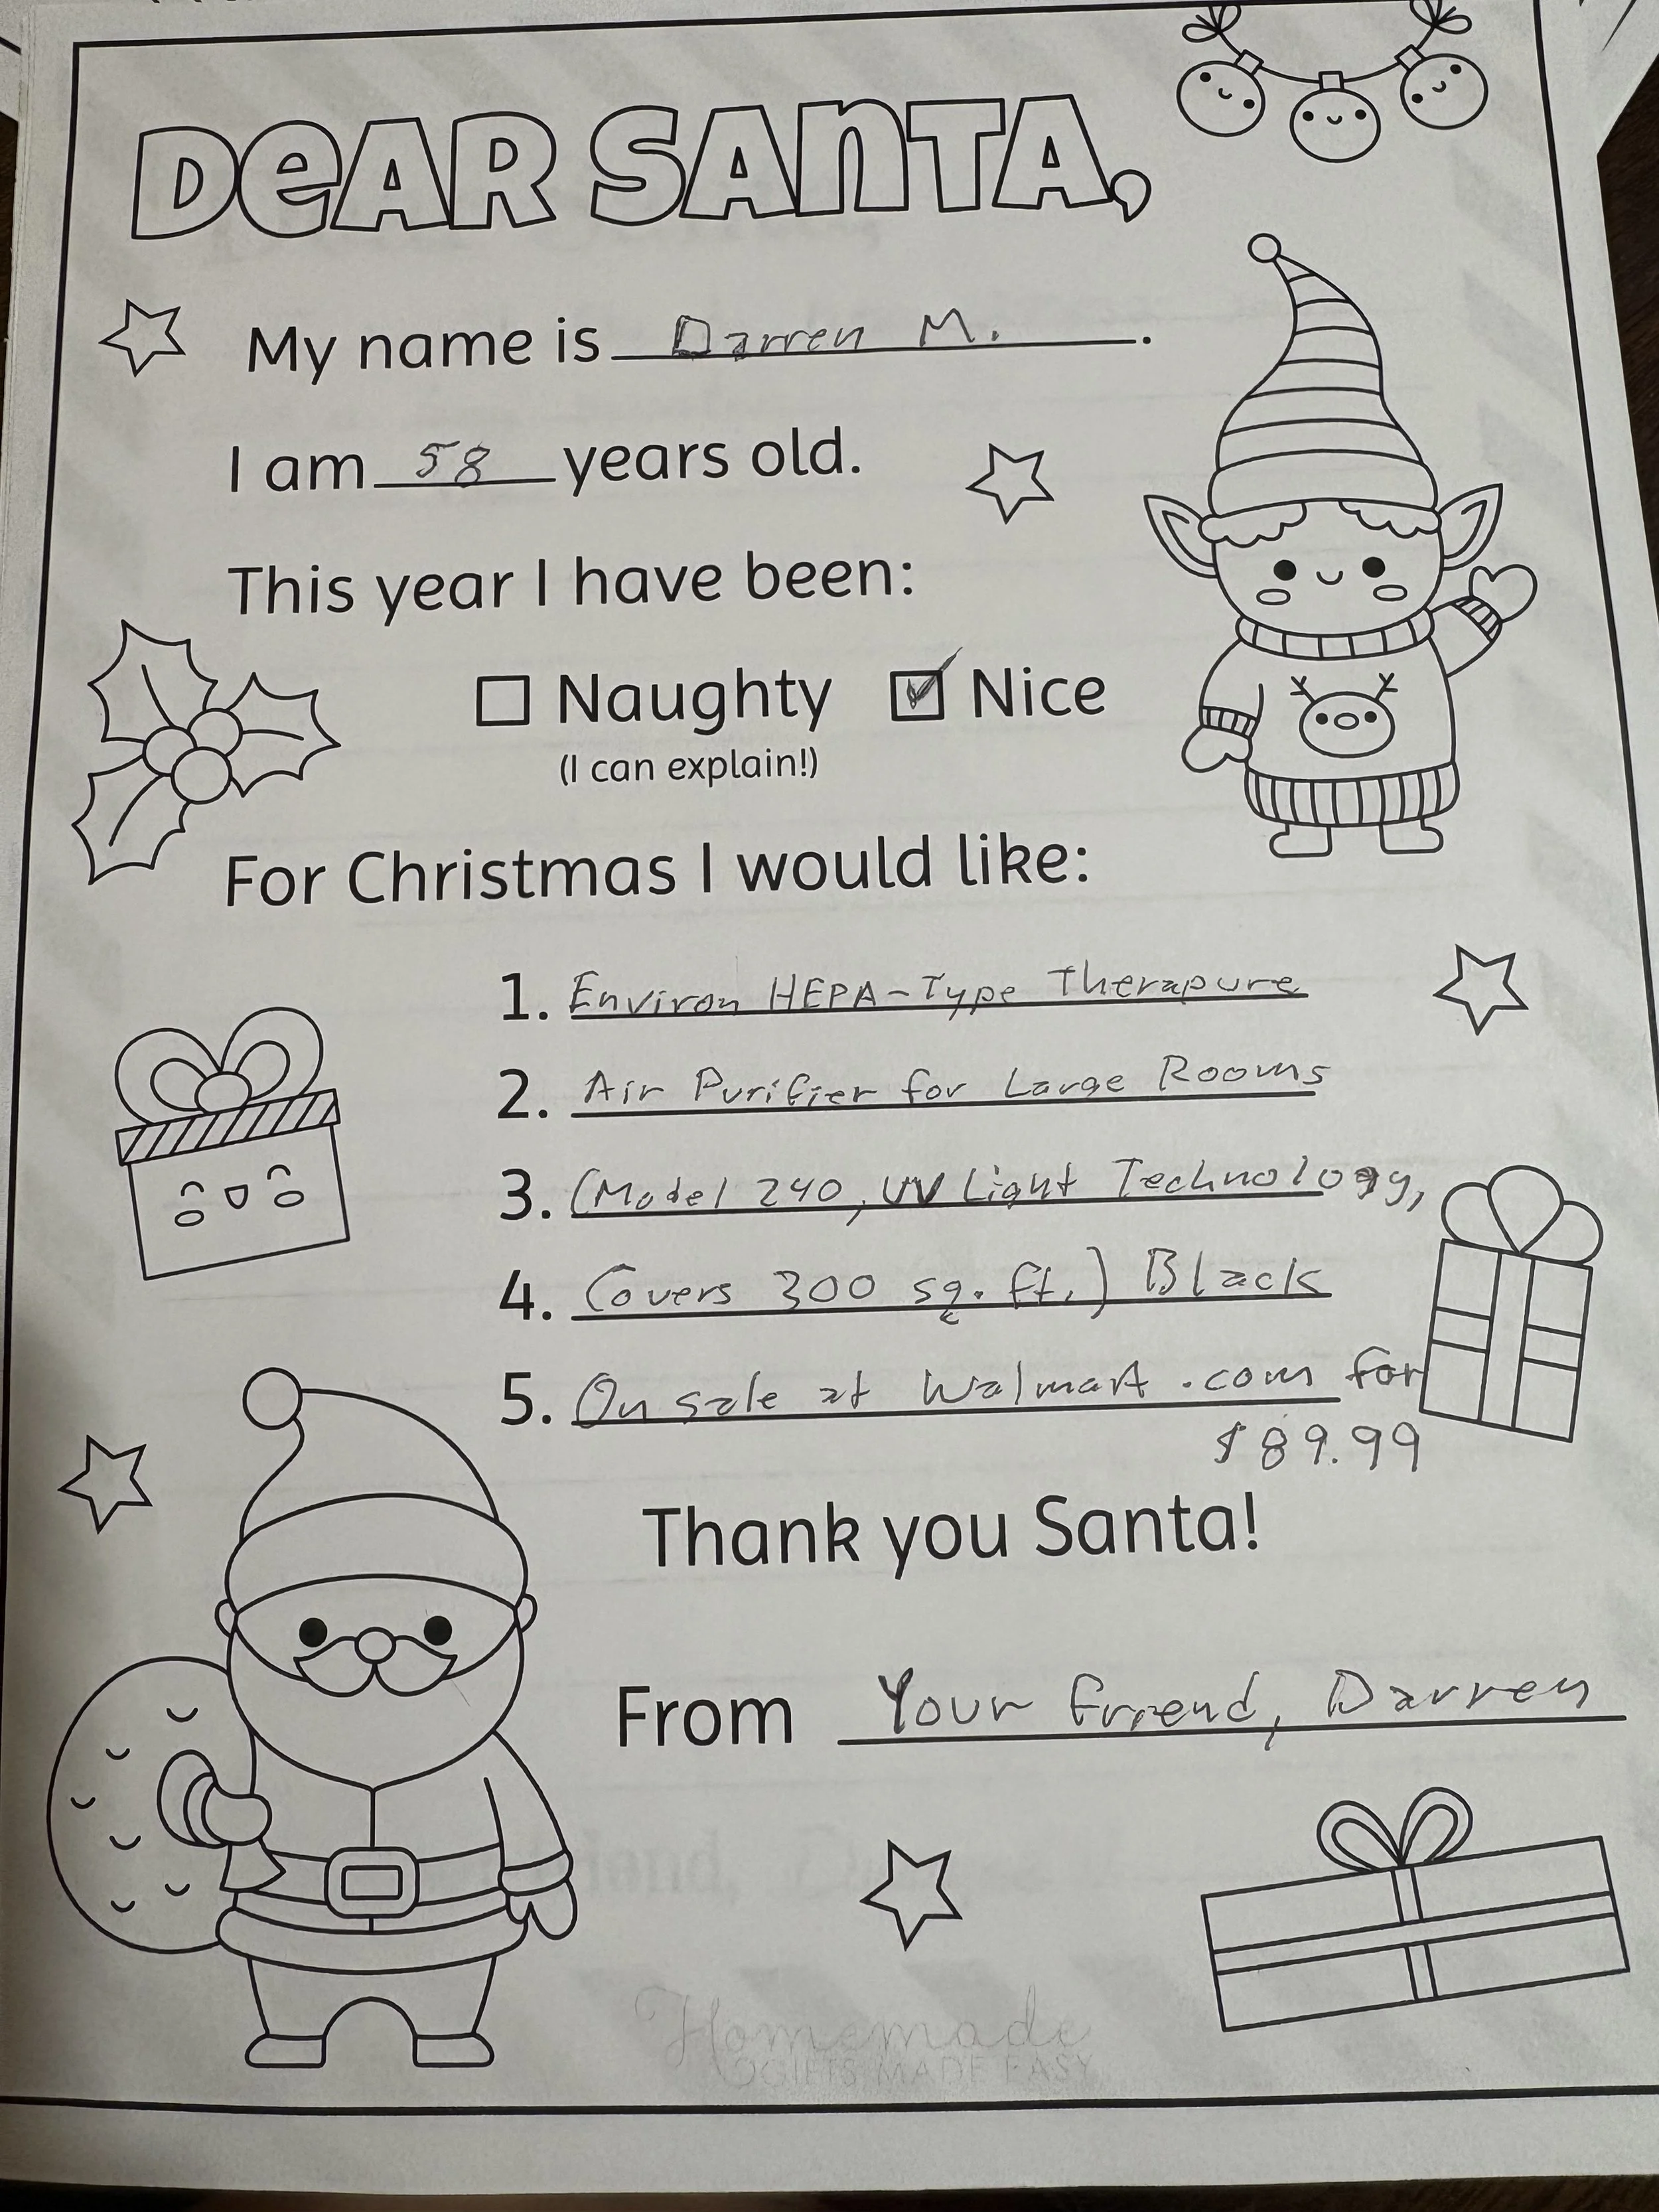 DEAR SANTA,
My name is Darren M.
I am 58 years old.
This year I have been:
Naughty Nice
(I can explain!)
For Christmas I would like:
1. Environ HEPA-Type Therapure
2. Air Purifier for Large Rooms
3. (Model 240, UV Light Technology,
4. Covers 300 sq. ft.) Black
5. On sale at Walmart.com for
$89.99
Thank you Santa!
From Your friend, Darren
Homemade
GIFTS MADE EASY